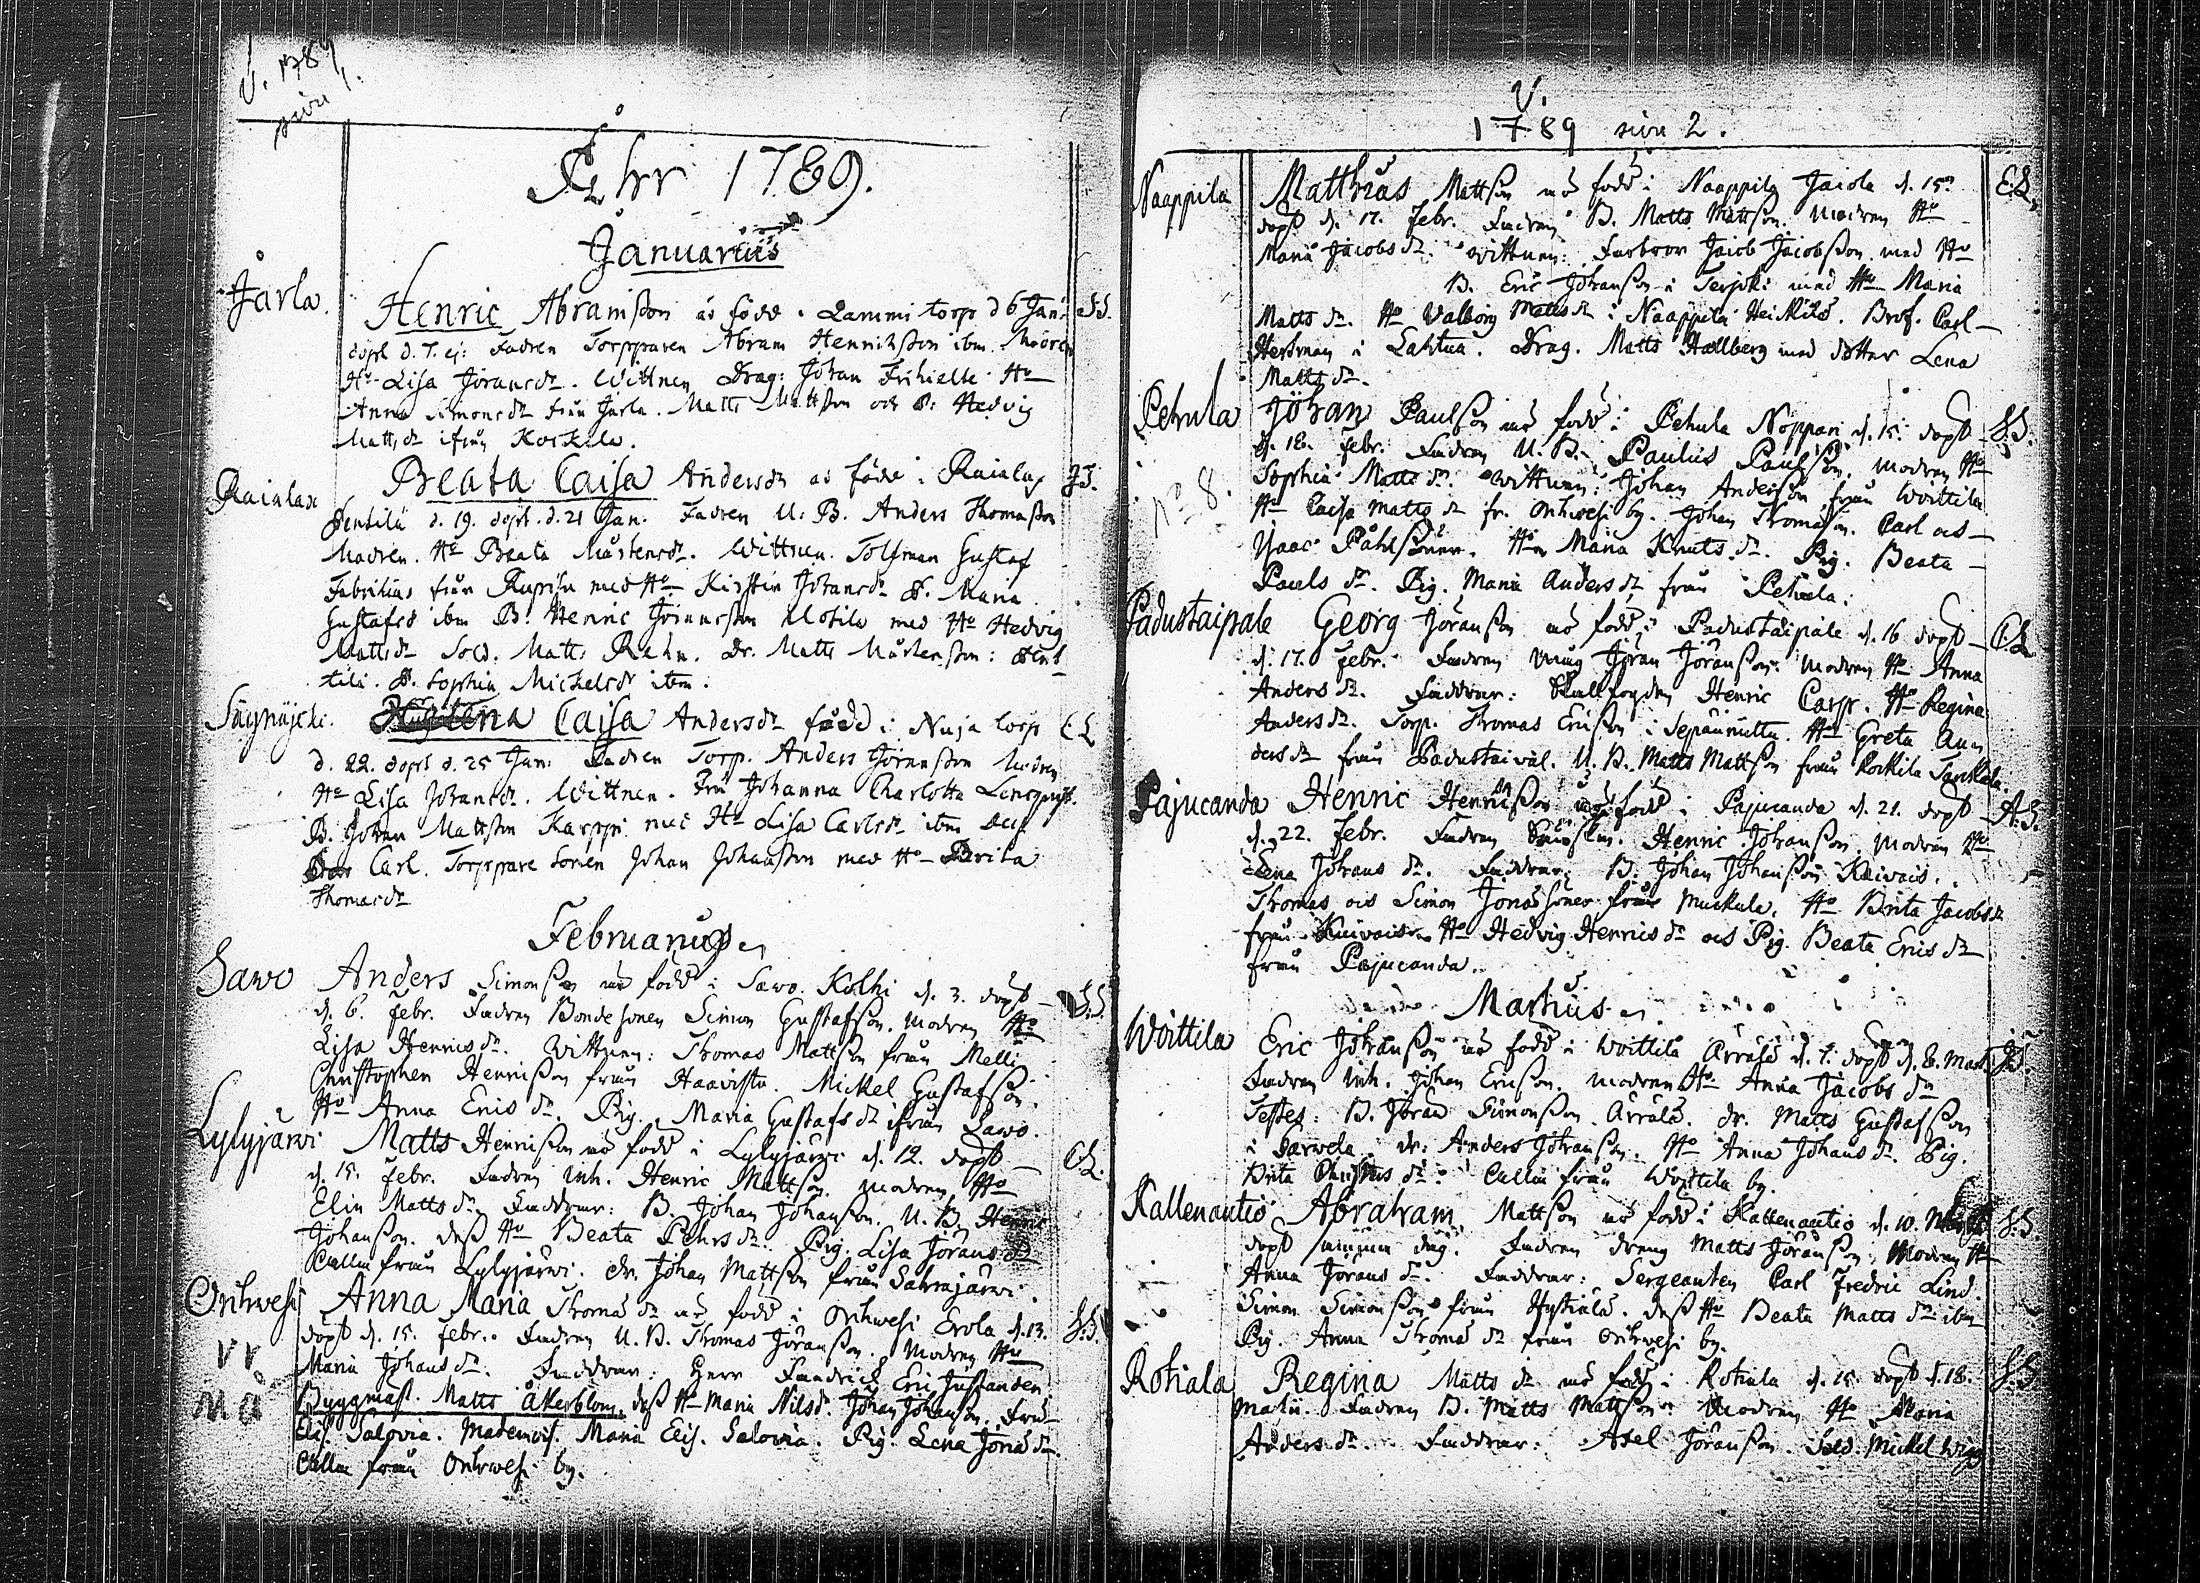 V. 1789,
sivu 1.
Åhr 1789.
Januarius
Järla.
Henric Abramsson är född i Lammi torp d 6 Jan: S.S.
döpt d. 7. ej: Fadren Torpparen Abram Henriksson ibm. Modren
Hu Lisa Jöransdr. Wittnen Drag: Johan Frihielte Hu
Anna Simonsdr från Järla. Matts Mattsson och P: Hedvig
Mattsdr ifrån Korkila.
Rainlax
Beata Caisa Andersdr är föda i Rainlax J.T.
Pentilä d. 19. döpt. d. 21 Jan: Fadren U: B. Anders Thomasson
Modren. Hu Beata Mårtensdr. Wittnen. Tolfman Gustaf
Fabritius från med Hu Kirstin Johansdr P. Maria
Gustafsd ibm B. Henric Jöransson Motila med Hu Hedvig
Mattsdr Sold. Matts Rehn. Dr. Matts Mårtensson:
tilä. P. Sophia Michelsdr ibm.
Säynäjoki.
Lena Caisa Andersdr född i Nuja torp E.L
d. 22. döpt d. 25 Jan: Fadren Torp. Anders Jöransson Modren
Hu Lisa Johansdr. Wittnen. Fru Johanna Charlotta Lencqvist.
B. Johan Mattsson Karppi med Hu Lisa Carlsdr ibm
Carl. Torppare Sonen Johan Johansson med Hu Brita
Thomasdr
Februarius
Sawo
Anders Simonsson är född i Sawo Kolhi d. 3. döpt S.S.
d. 6. Febr. Fadren Bonde sonen Simon Gustafson. Modren Hu
Lisa Henricsdr. Wittnen: Thomas Mattson från Melli
Christopher Henricson från Haavisto. Mickel Gustafson.
Hu Anna Ericsdr. Pig. Maria Gustafsdr ifrån Sawo.
Lylyjärvi
Matts Henricson är född i Lylyjärvi d. 12. döpt E.L.
d. 15. Febr. Fadren Inh. Henric Mattson. Modren Hu
Elin Mattsdr. Faddrar: B. Johan Johanson. U. B. Henric
Johanson. dess Hu Beata Pehrsdr. Pig. Lisa Jöransdr
Calla från Lylyjärvi. dr. Johan Mattson från Sahrajärvi.
Orihwesi
Anna Maria Thomæ dr är född i Orihwesi Erola d. 13. S.S.
döpt d. 15. Febr. Fadren U. B. Thomas Jöranson. Modren Hu
Maria Johansdr. Faddrar: Herr Fendrick Eric Justander.
Byggmäst. Matts Åkerblom, dess Hu Maria Nilsd. Johan Johanson. Fru
Elis. Salovia. Mademois. Maria Elis. Salovia. Pig. Lena Jonædr.
Calla från Orihwesi by.
V.
1789 sivu 2.
Naappila
Matthias Mattson är född i Naappila Jaiola d. 15. E.L.
döpt d. 17. Febr. Fadren B. Matts Mattson. Modren Hu
Maria Jacobsdr. Wittnen: Farbror Jacob Jacobsson med Hu
B. Eric Johanson i Terjoki med Hu Maria
Mattsdr. Hu Valborg Mattsdr i Naappila Heikkilä. Brof. Carl
Herkman i Lahtua. Drag. Matts Hallberg med dotter Lena
Mattsdr.
Pehula
No 8.
Johan Paulson är född i Pehula Noppari d. 15. döpt S.S.
d. 18. Febr. Fadren U. B. Paulus Paulson. Modren Hu
Sophia Mattsdr. Wittnen: Johan Anderson från Woittila
Hu Caisa Mattsdr fr. Orihwesi by. Johan Thomason. Carl och
Isaac Påhlsöner. Hu Maria Knutsdr. Pig. Beata
Paulsdr. Pig. Maria Andersdr från Pehula.
Padustaipale
Georg Jöranson är född i Padustaipale d. 16 döpt E.L
d. 17. Febr. Fadren Jöran Jöranson. Modren Hu Anna
Andersdr. Faddrar: Skallfogden Henric Carp. Hu Regina
Andersdr. Torp. Thomas Ericson i Sepänmutta. Hu Greta An
dersdr från Padustaival. U. B. Matts Mattson från Korkila Tarckala.
Pajucanda
Henric Henricson är född i Pajucanda d. 21. döpt A.S.
d. 22. Febr. Fadren Henric Johanson. Modren Hu
Lena Johansdr. Faddrar: B. Johan Johanson Kaivais.
Thomas och Simon Jonæsöner från Muckula. Hu Brita Jacobsdr
från Kuivais. Hu Hedvig Henricsdr och Pig. Beata Ericsdr
från Pajucanda.
Martius
Woittila
Eric Johanson är född i Woittila Ärrälä d. 7. döpt d. 8. Mart. J.T.
Fadren Inh. Johan Ericson. Modren Hu Anna Jacobsdr
Testes: B. Jöran Simonson Ärrälä. dr. Matts Gustafson
i Sarwela. dr. Anders Johanson. Hu Anna Johansdr. Pig.
Brita dr. Calla från Woittila by.
Kallenautio
Abraham Mattson är född i Kallenautio d. 10. S.S.
döpt samma dag. Fadren dreng Matts Jöranson. Modren Hu
Anna Jöransdr. Faddrar: Sergeanten Carl Fredric Lind.
Simon Simonson från Hystiälä. dess Hu Beata Mattsdr ibm
Pig. Anna Thomædr från Orihwesi by.
Rohiala
Regina Mattsdr är född i Rohiala d. 15. döpt d. 18. S.S.
Martii. Fadren B. Matts Mattson. Modren Hu Maria
Andersdr. Faddrar: Axel Jöranson. Sold. Mickel Wigg